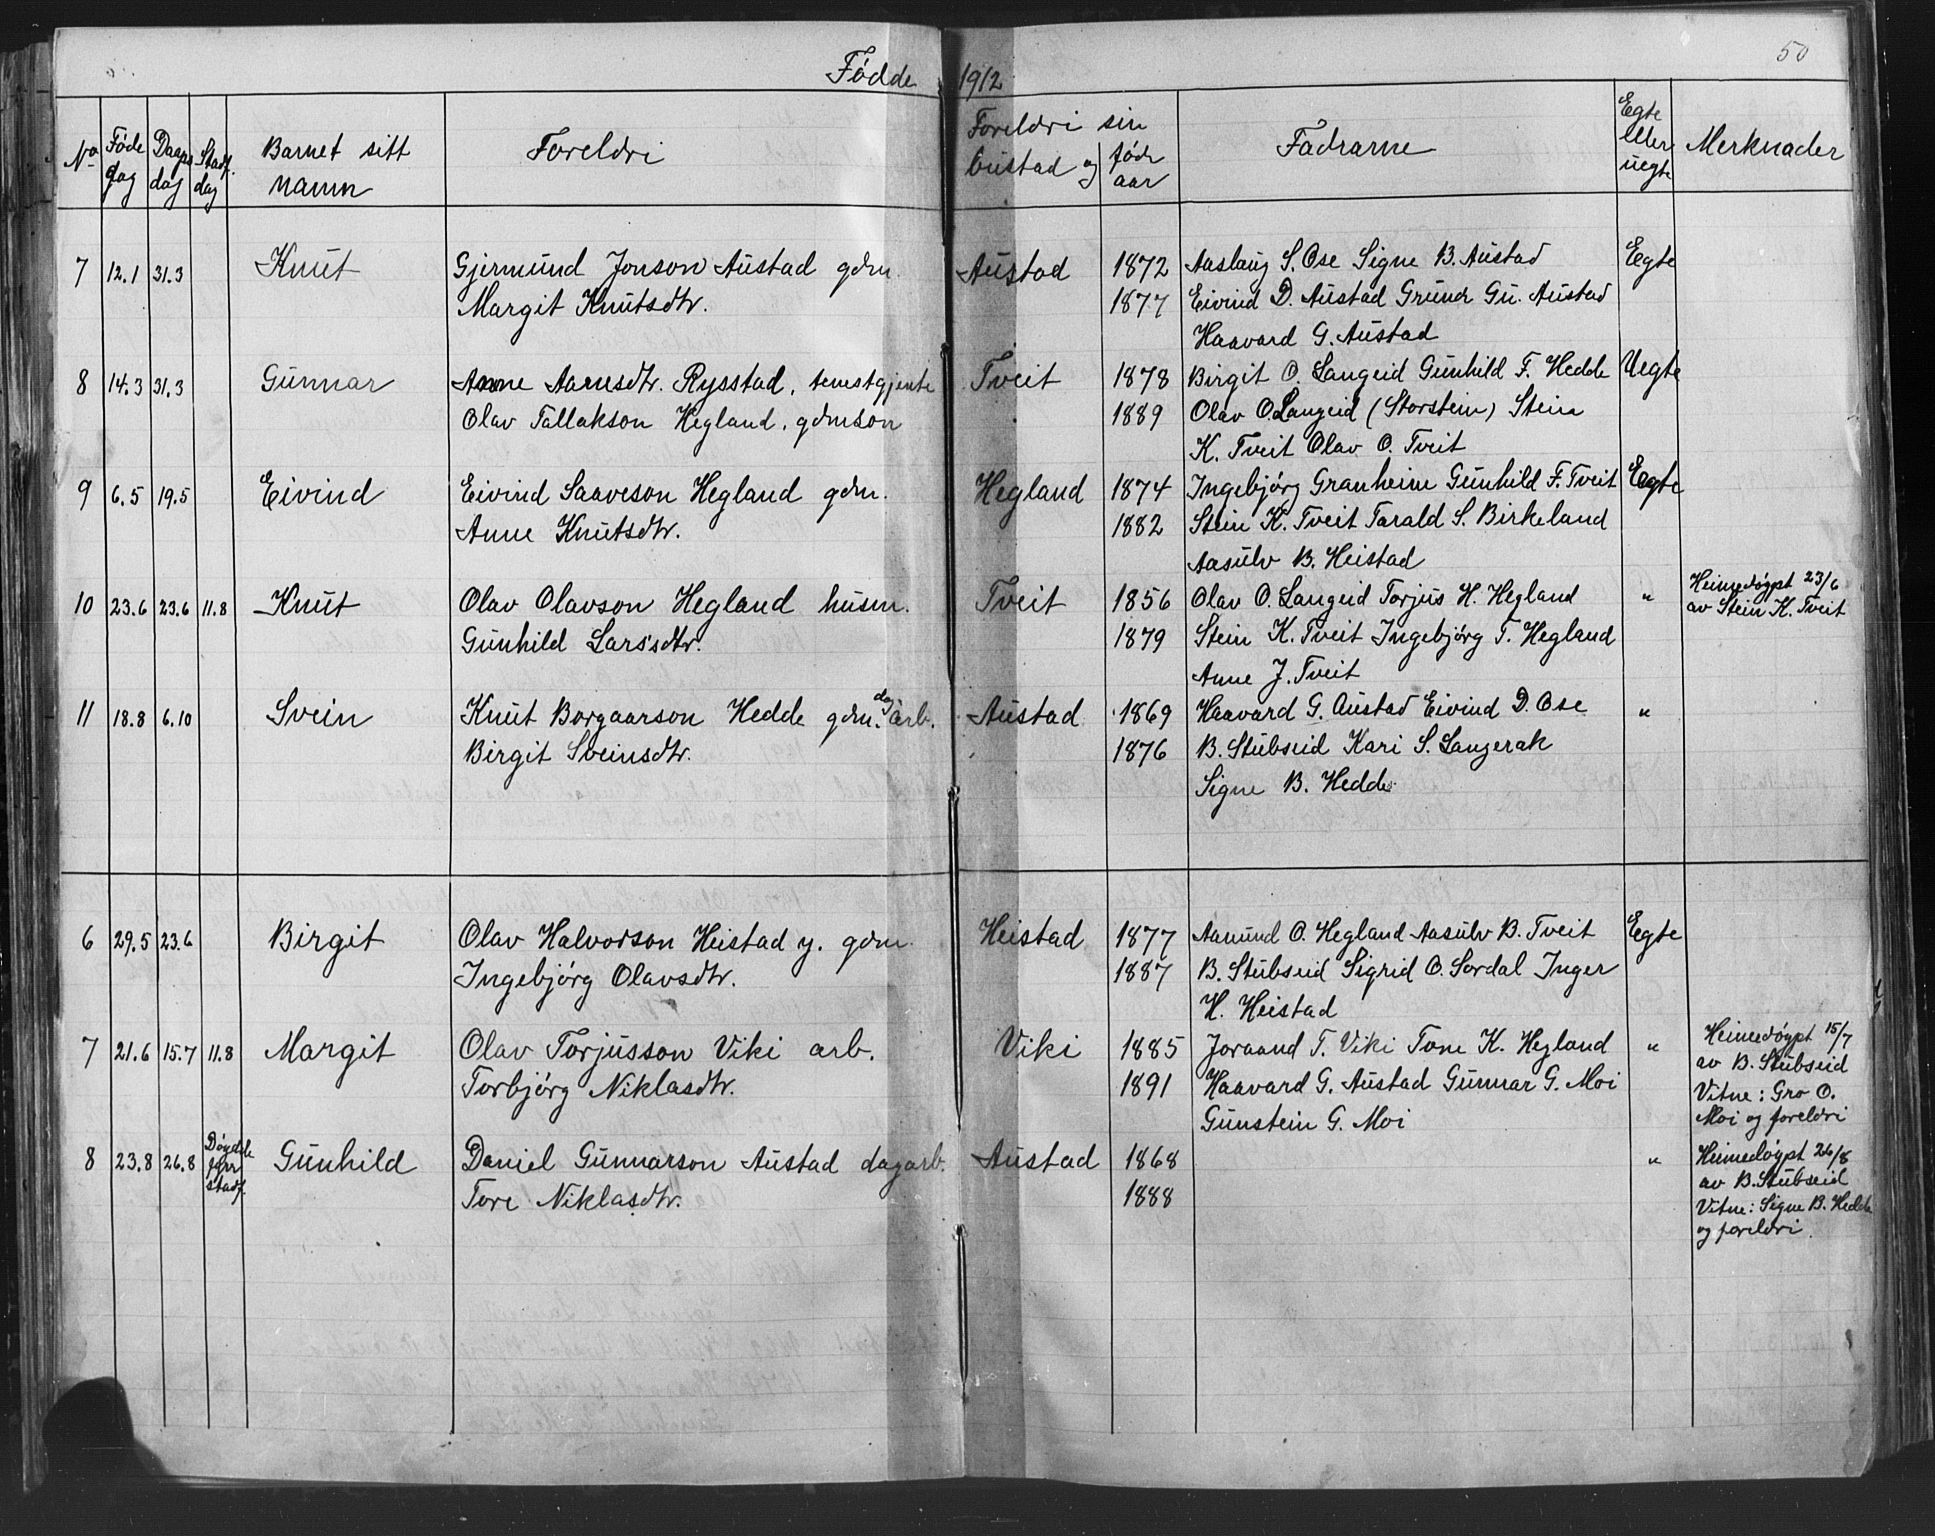 50
Fødde 1912
No Føde dag Daaps dag Stadf. dag Barnet sitt namn Foreldri Foreldri sin bustad og føde aar Fadrarne Egte eller uegte Merknader
7 12.1 31.3 Knut Gjermund Jonson Austad gdm. Austad 1872 Aaslaug S. Ose Signe B. Austad Egte
Margit Knutsdtr. 1877 Eivind D. Austad Gunder Gu. Austad
Haavard G. Austad
8 14.3 31.3 Gunnar Anne Aanesdtr. Rysstad, tenestgjente Tveit 1878 Birgit O. Langeid Gunhild F. Hedde Uegte
Olav Tallakson Hegland, gdmson 1889 Olav O. Langeid (Storstein) Stein
K. Tveit Olav O. Tveit
9 6.5 19.5 Eivind Eivind Saaveson Hegland gdm. Hegland 1874 Ingebjørg Granheim Gunhild F. Tveit Egte
Anne Knutsdtr. 1882 Stein K. Tveit Tarald S. Birkeland
Aasulv B. Heistad
10 23.6 23.6 11.8 Knut Olav Olavson Hegland husm. Tveit 1856 Olav O. Langeid Torjus H. Hegland " Heimedøypt 23/6
Gunhild Larsdtr. 1879 Stein K. Tveit Ingebjørg T. Hegland av Stein K. Tveit
Anne J. Tveit
11 18.8 6.10 Svein Knut Borgaarson Hedde gdm. dag arb. Austad 1869 Haavard G. Austad Eivind D. Ose "
Birgit Sveinsdtr. 1876 B. Stubseid Kari S. Langerak
Signe B. Hedde
6 29.5 23.6 Birgit Olav Halvorson Heistad y. gdm. Heistad 1877 Aanund O. Hegland Aasulv B. Tveit Egte
Ingebjørg Olavsdtr. 1887 B. Stubseid Sigrid O. Sordal Inger
H. Heistad
7 21.6 15.7 11.8 Margit Olav Torjusson Viki arb. Viki 1885 Joraand T. Viki Tone K. Hegland " Heimedøypt 15/7
Torbjørg Niklasdtr. 1891 Haavard G. Austad Gunnar G. Moi av B. Stubseid
Gunstein G. Moi Vitne: Gro O.
Moi og foreldri
8 23.8 26.8 Døydde fyrr stadf. Gunhild Daniel Gunnarson Austad dagarb. Austad 1868 " Heimedøypt 26/8
Tore Niklasdtr. 1888 av B. Stubseid
Vitne: Signe B. Hedde
og foreldri.